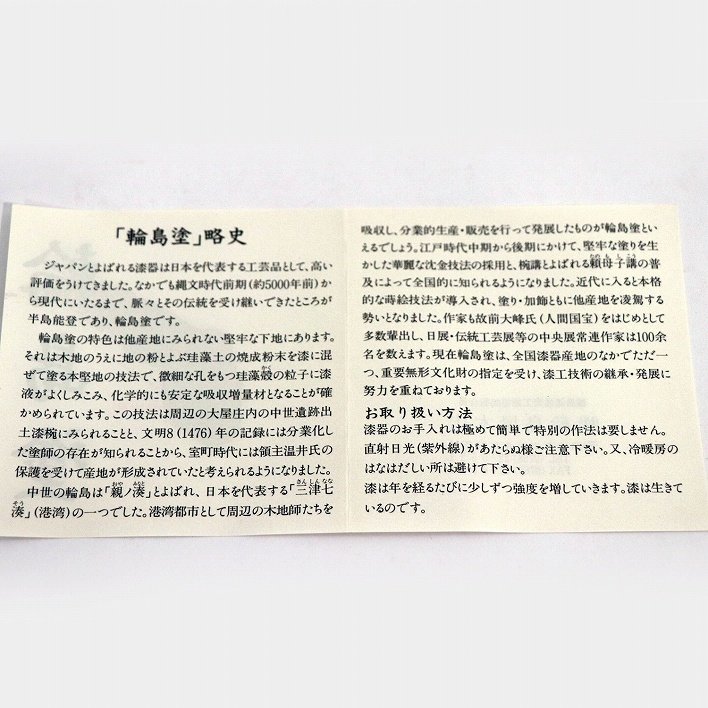 「輪島塗」略史
ジャパンとよばれる漆器は日本を代表する工芸品として、高い
評価をうけてきました。なかでも縄文時代前期(約5000年前)か
ら現代にいたるまで、脈々とその伝統を受け継いできたところが
半島能登であり、輪島塗です。
輪島塗の特色は他産地にみられない堅牢な下地にあります。
それは木地のうえに地の粉とよぶ珪藻土の焼成粉末を漆に混
ぜて塗る本堅地の技法で、微細な孔をもつ珪藻殻の粒子に漆
液がよくしみこみ、化学的にも安定な吸収増量材となることが確
かめられています。この技法は周辺の大屋庄内の中世遺跡出
土漆椀にみられることと、文明8(1476)年の記録には分業化し
た塗師の存在が知られることから、室町時代には領主温井氏の
保護を受けて産地が形成されていたと考えられるようになりました。
中世の輪島は「親ノ湊」とよばれ、日本を代表する「三津七
湊」(港湾)の一つでした。港湾都市として周辺の木地師たちを
吸収し、分業的生産・販売を行って発展したものが輪島塗とい
えるでしょう。江戸時代中期から後期にかけて、堅牢な塗りを生
かした華麗な沈金技法の採用と、椀講とよばれる頼母子講の普
及によって全国的に知られるようになりました。近代に入ると本格
的な蒔絵技法が導入され、塗り・加飾ともに他産地を凌駕する
勢いとなりました。作家も故前大峰氏(人間国宝)をはじめとして
多数輩出し、日展・伝統工芸展等の中央展常連作家は100余
名を数えます。現在輪島塗は、全国漆器産地のなかでただ一
つ、重要無形文化財の指定を受け、漆工技術の継承・発展に
努力を重ねております。
お取り扱い方法
漆器のお手入れは極めて簡単で特別の作法は要しません。
直射日光(紫外線)があたらぬ様ご注意下さい。又、冷暖房の
はなはだしい所は避けて下さい。
漆は年を経るたびに少しずつ強度を増していきます。漆は生きて
いるのです。